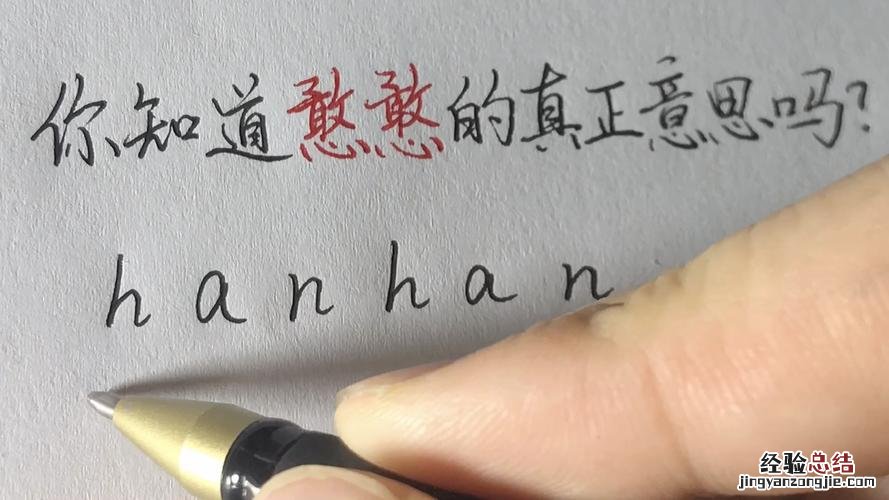 你知道憨憨的真正意思吗?
hanhan
经验总结
jingyanzongjie.com